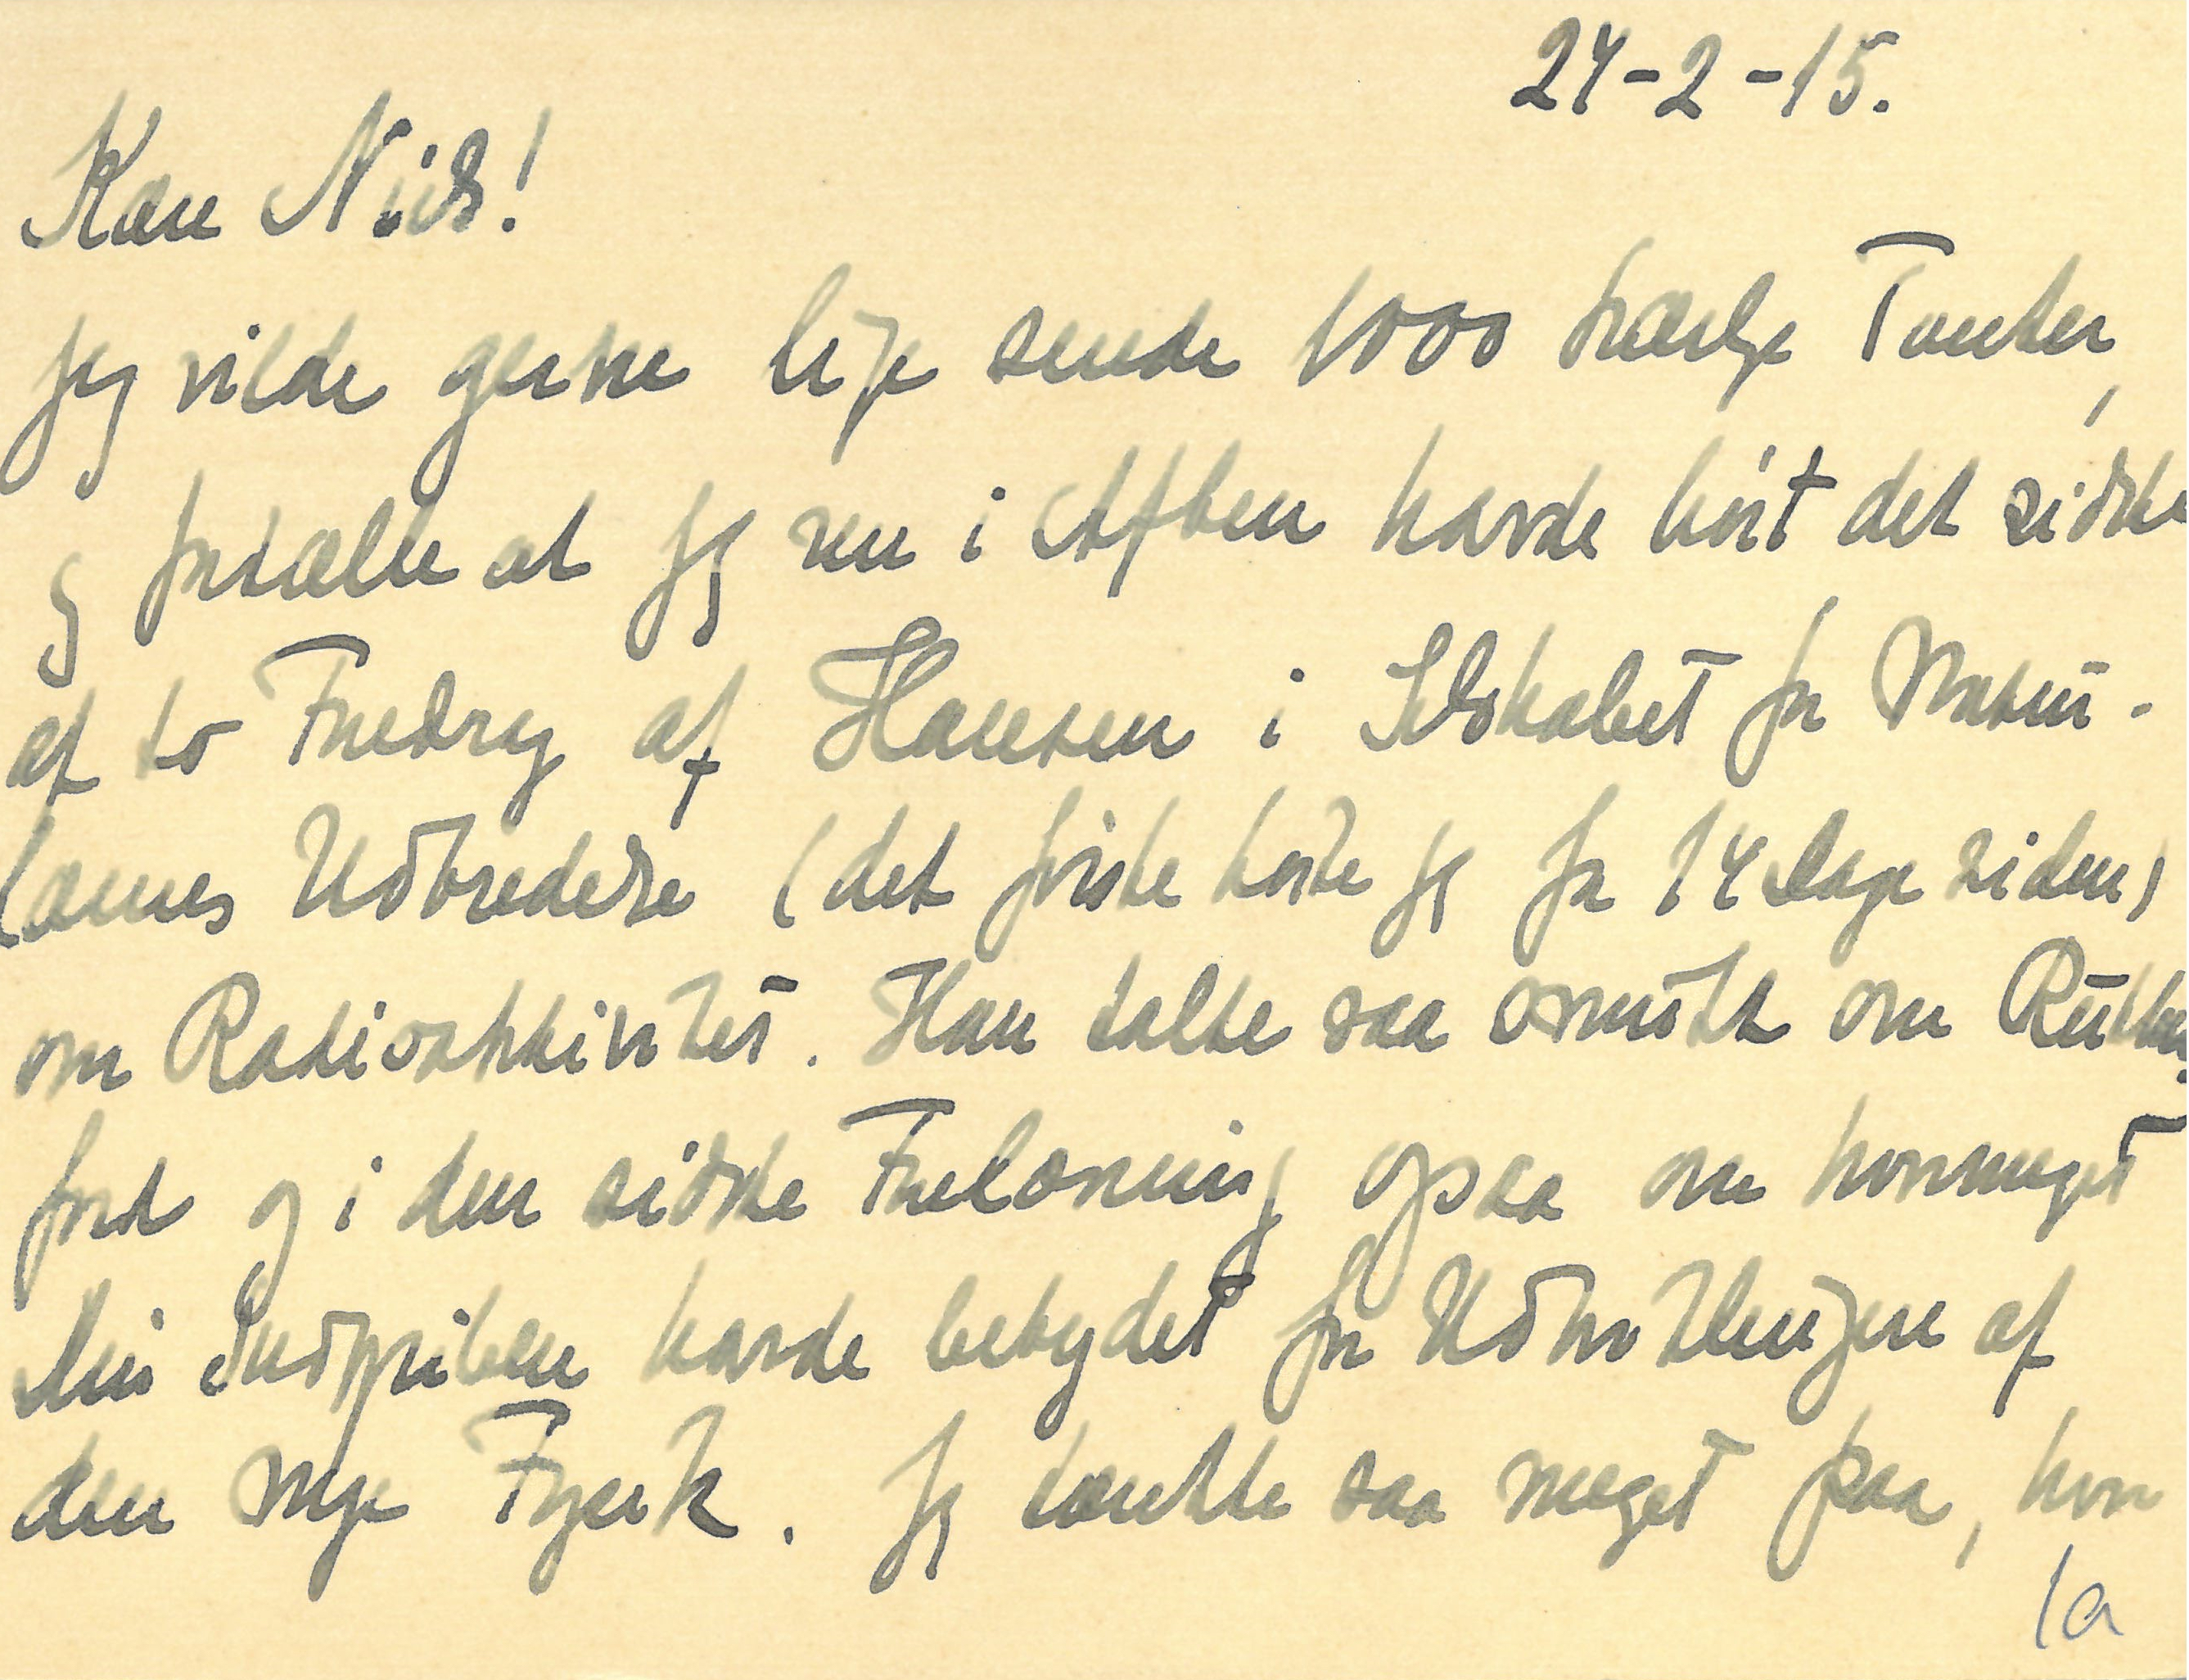 24-2-15.
Kære Niels!
Jeg vilde gerne lige sende 1000 kærlige Tanker,
og fortælle at jeg nu i Aften havde hørt det sidste
af to Foredrag af Hansen i Selskabet for Natur-
lærens Udbredelse (det første hørte jeg for 14 Dage siden)
om Radioaktivitet. Han talte saa smukt om Ruther-
ford og i den sidste Forelæsning ogsaa om hvormeget
Din Indgriben havde betydet for Udviklingen af
den nye Fysik. Jeg tænkte saa meget paa, hvor
1a